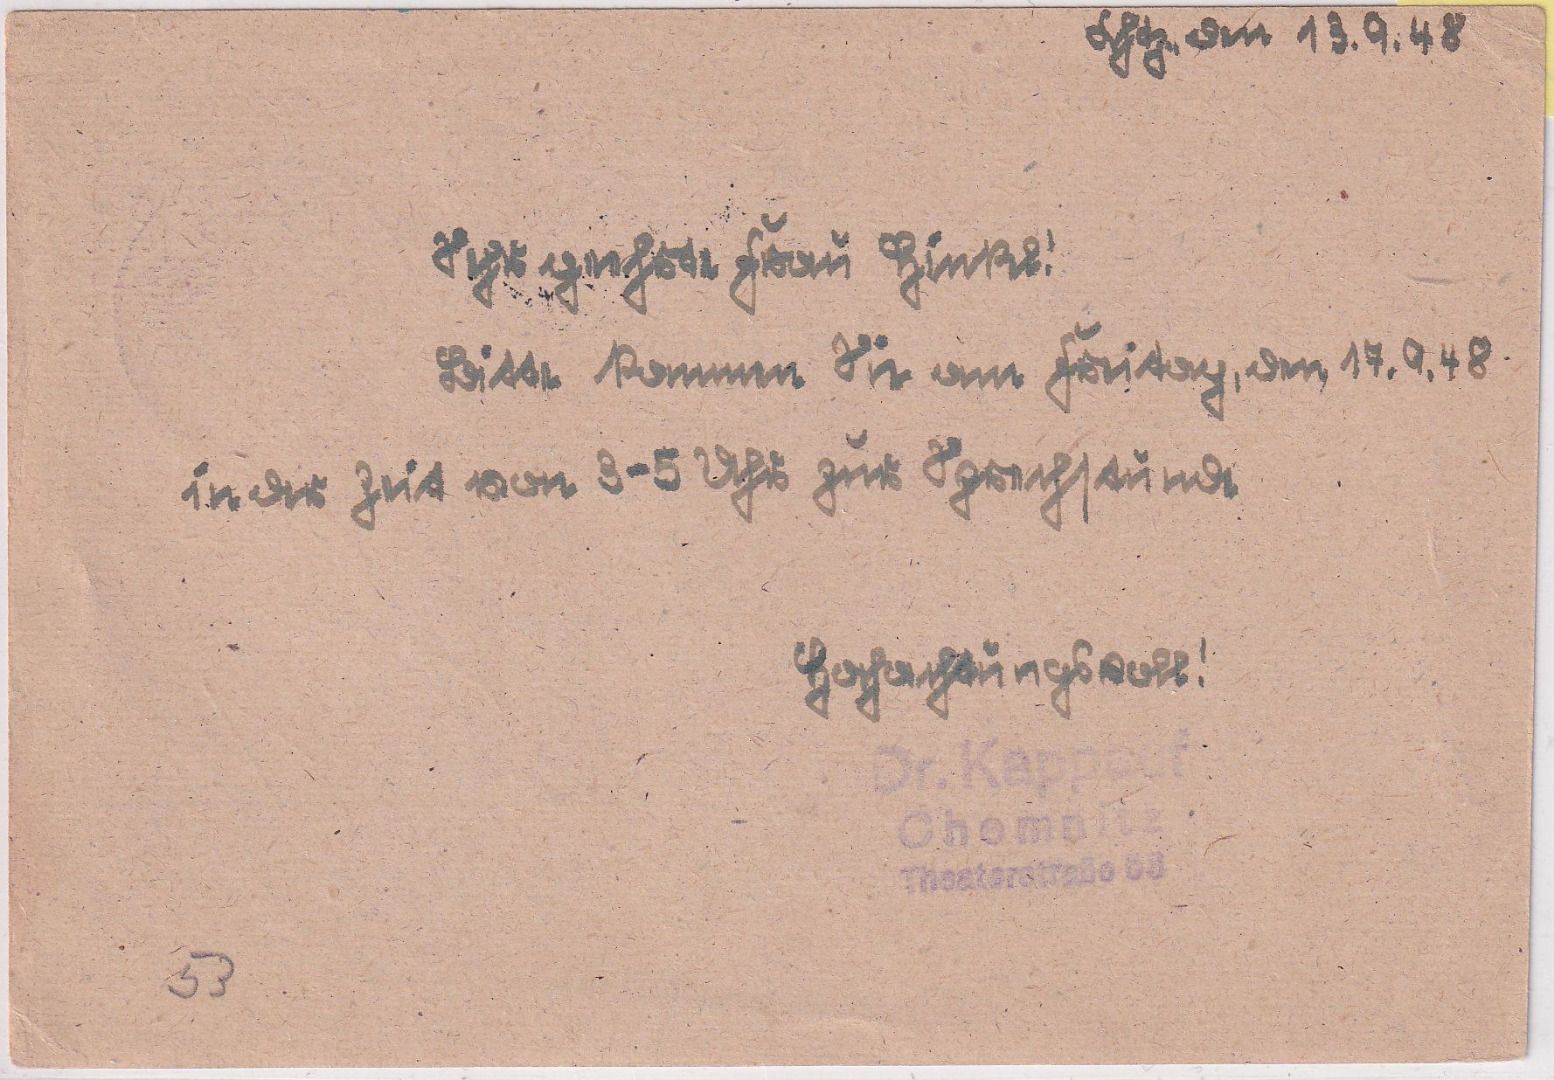 Chtz., den 13.9.48
Sehr geehrte Frau Hinkel!
Bitte kommen Sie am Freitag, den 17.9.48
in der Zeit von 3-5 Uhr zur Sprechstunde
Hochachtungsvoll!
Dr.
Chemnitz
Theaterstraße
53